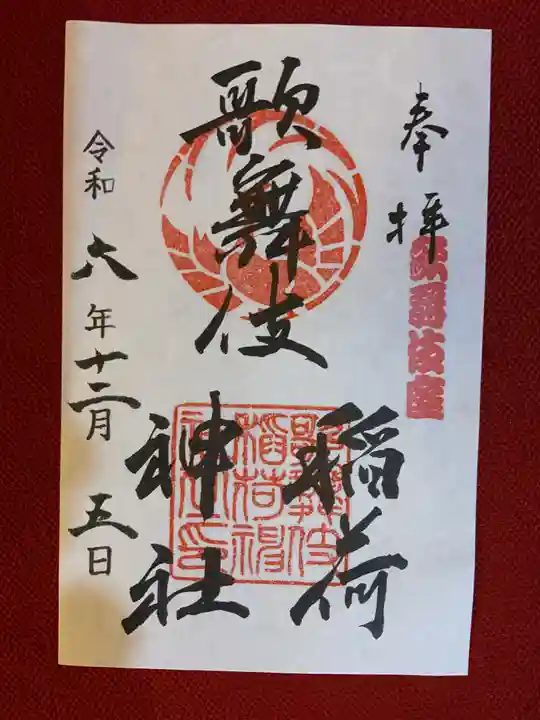 奉拝
歌舞伎座
歌舞伎
稲荷
神社
歌舞伎
稲荷神
社之印
令和六年十二月五日